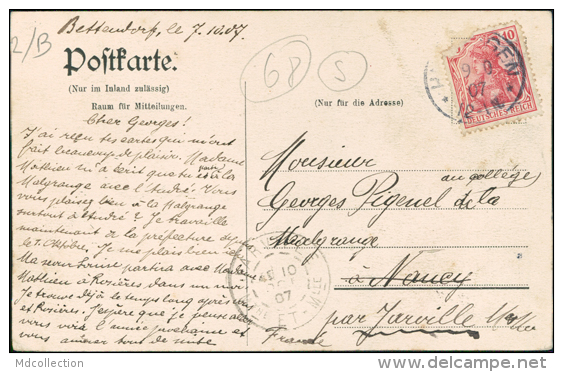 Bettendorf, le 7.10.07
2/B
Postkarte.
(Nur im Inland zulässig)
Raum für Mitteilungen.
68
S
10
DEUTSCHES REICH
(Nur für die Adresse)
Cher Georges!
J'ai reçu tes cartes qui m'ont
fait beaucoup de plaisir. Madame
Mathieu m'a écrit que tu es à la
Malgrange avec l'André. Vous
vous plaisez bien à la Malgrange
surtout à André? Je travaille
maintenant de la préfecture
le 1. Oktober. Je me plais bien
Ma soeur Louise partira avec Madame
Mathieu à Rozières dans un mois
Je trouve déjà le temps long après vous
et Rozières. J'espère que je peux aller
vous voir l'année prochaine et
vous aimer tout de suite
Monsieur
au collège
Georges Pigenel de la
Malgrange
à Nancy
par Jarville M.&M.
France
Mdcollection
delcampe.net